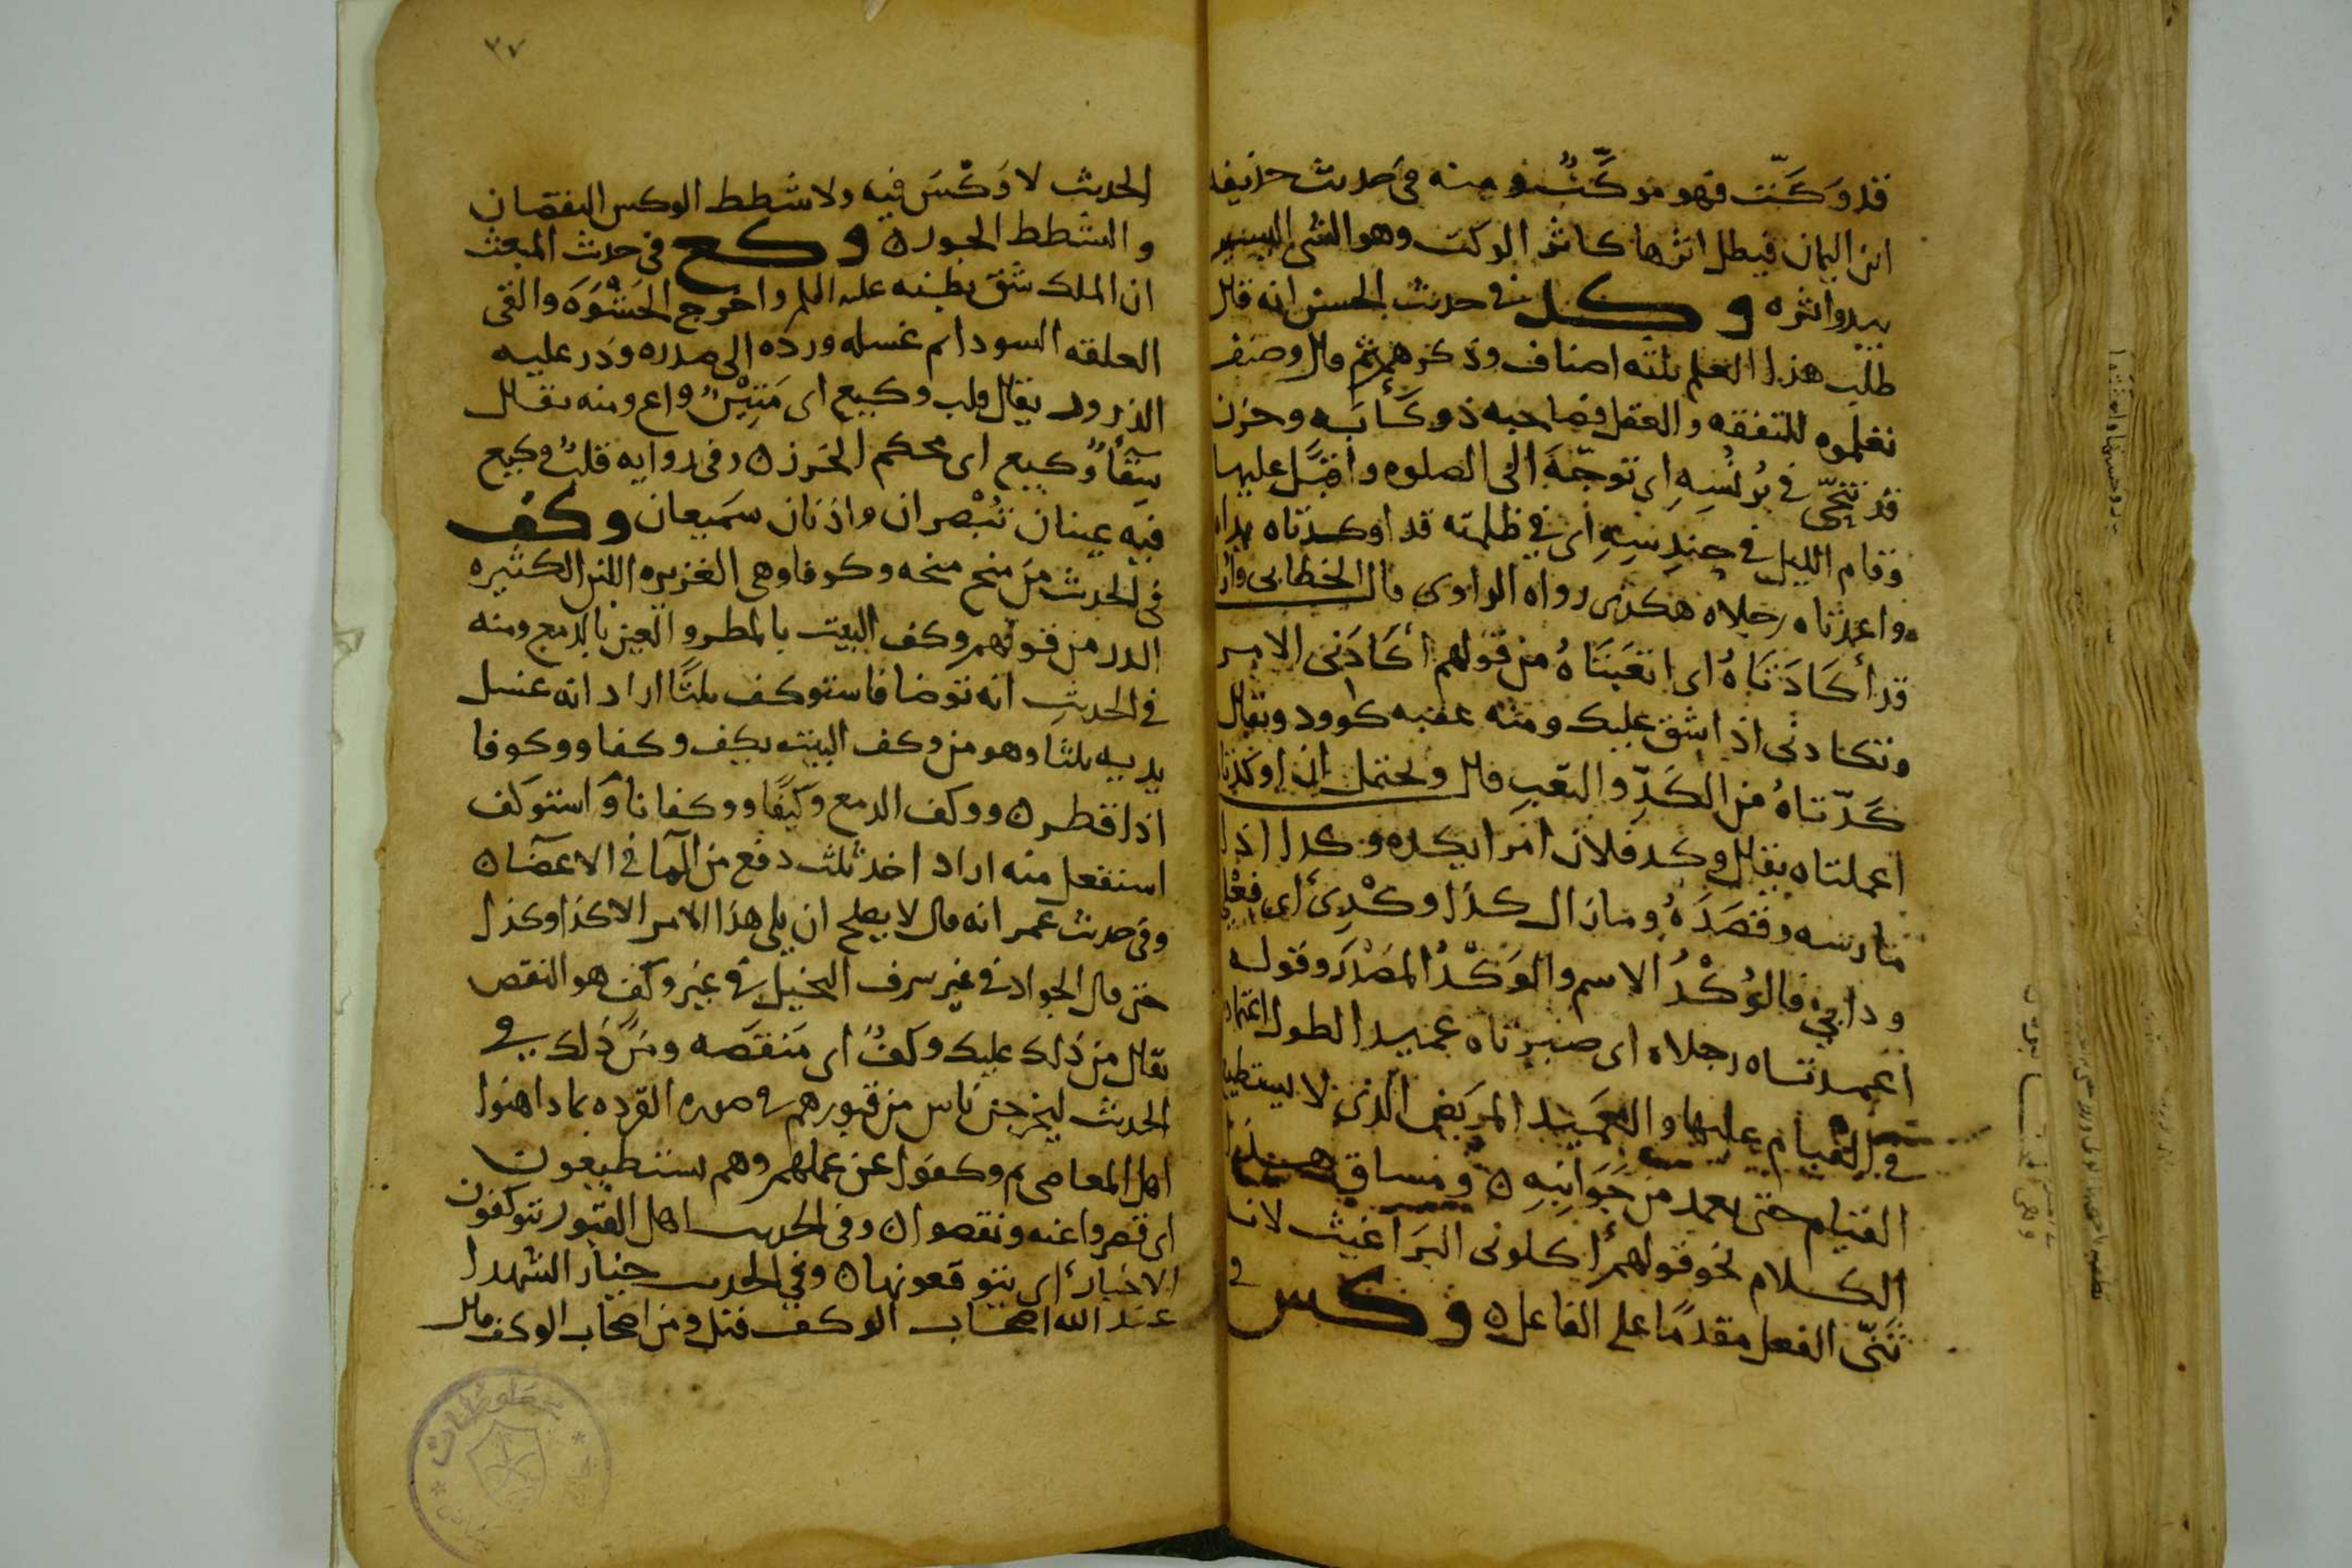 قد وَكَّتَ فهو موكِّتٌ ومنه فى حديث حذيفه
ابن اليمان فيظل اثرها كاثر الوكت وهو الشى اليسير
يبدوا اثره وكد فى حديث الحسن انه قال
طلب هذا العلم ثلثه اصناف وذكرهم ثم قال وصنف
تعلموه للتفقه والعقل فصاحبه ذو كَأبَه وحزن
قد تنحّى فى بُرنُسِهِ اى توجّهَ الى الصلوه واقبَل عليها
وقام الليل فى حِندِسِهِ اى فى ظلمته قد اوكدتاه يداه
واعمدتاه رجلاه هكذى رواه الراوى قال الخطابى وانا
قد أكَادَتَاهُ اى اتعَبَتَاهُ من قولهم أكَادَنى الامر
وتكادنى اذا شق عليك ومنه عقبه كاوود ويقال
كَدّتاهُ من الكَدِّ والتعَبِ قال ويحتمل ان اوكدتاه
اعملتاه يقال وكد فلان امرا يكده وكدا اذا
مارسه وقصَدَهُ وما زال كذا وكْدِى أى فِعْلى
ودابى فالوُكْدُ الاسم والوَكْدُ المصْدَر وقوله
اعمدتاه رجلاه اى صيرتاه عميدا لطول اعتماده
فى القيام عليها والعَمِيد المريَض الذى لا يستطيع
القيام حتى يعمد من جَوَانِبِهِ ومساق هذا
الكلام نحو قولهم أكلونى البَرَاغيث لانه
ثَنّى الفعل مقدمًا على الفاعل وكس فى
٣٧
الحديث لا وَكْسَ فيه ولا شَطط الوكس النقصان
والشطط الجور وكع فى حديث المبعث
ان الملك شقَ بطنه عليه السلم واخرج الحَشْوَهَ والقى
العلقه السودا ثم غسله ورده الى صدره وذر عليه
الذرور يقال قلب وكيع اى مَتِيْنٌ واع ومنه يقال
سِقَأٌ وكيع اى محكم الخرز وفى روايه قلبٌ وكيع
فيه عينان تُبْصران واذنان سَميعان وكف
فى الحديث من منح منحه وكوفا وهى الغزيره اللبن الكثيره
الدر من قولهم وكف البيت بالمطر والعين بالدمع ومنه
فى الحديثِ انه توضا فاستوكف ثلثًا اراد انه غسل
يديه ثلثا وهو من وكف البيت يكِف وكفا ووكوفا
اذا قطر ووكف الدمع وَكيفًا ووكفانا واستوكف
استفعل منه اراد اخذ ثلث دفع من المآ فى الاعضآ
وفى حديث عمر انه قال لا يصلح ان يلى هذا الامر الا كذا وكذا
حتى قال الجواد فى غير سرف البخيل فى غير وكف هو النقص
يقال من ذلك عليك وكفٌ اى مَنقَصَه ومن ذَلك فى
الحديث ليخرجن ناس من قبورهم فى صوره القرده بما داهنوا
اهل المعاصى ثم وكفوا عن عملهم وهم يستطيعون
اى قصروا عنه ونقصوا وفى الحديث اهل القبور يتوكفون
الاخبار اى يتوقعونها وفى الحديث خيار الشهدا
عند الله اصحاب الوكف قيل ومن اصحاب الوكف قال
مخطوطات